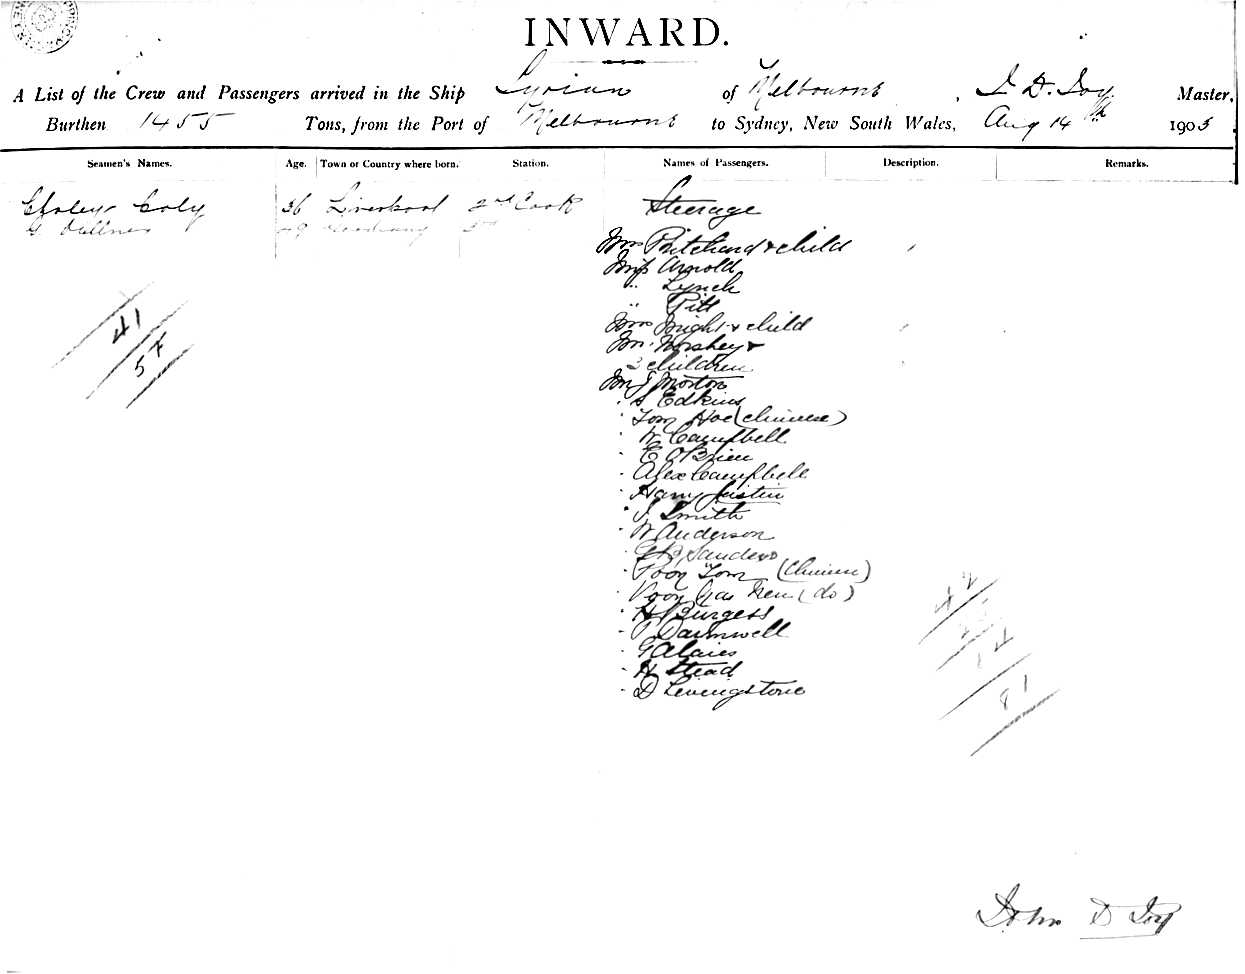 INWARD.
A List of the Crew and Passengers arrived in the Ship Syrian of Melbourne, J. D. Joy Master,
Burthen 1455 Tons, from the Port of Melbourne to Sydney, New South Wales, Aug 14th 1903
Seamen's Names. Age. Town or Country where born. Station. Names of Passengers. Description. Remarks.
36 Liverpool 2nd Cook Steerage
Mrs Pritchard & child
Miss Arnold
" Lynch
" Pitt
Mrs Wright & child
Mrs Worshey &
2 children
Mr J Morton
" S Edkins
" Tom Hoe (Chinese)
" W Campbell
" E O'Brien
" Alex Campbell
" Harry Justin
" J Smith
" W Anderson
" Sanders
" Poon Tom (Chinese)
" Poon (do)
" H Burgess
" Darmwell
" G Alaies
" H Stead
" D Livingstone
41
57
42
14
81
John D Joy